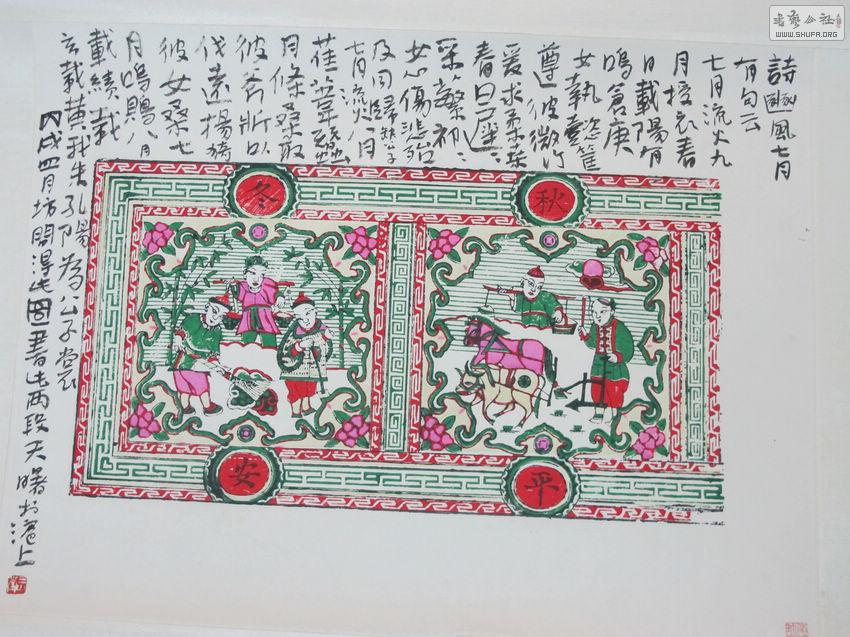 詩豳風七月
有句云
七月流火九
月授衣春
日載陽有
鳴倉庚
女執懿筐
遵彼微行
爰求柔桑
春日遲:
采蘩祁:
女心傷悲殆
及同歸公子
七月流火八月
萑葦蠶
月條桑取
彼斧斨以
伐遠揚猗
彼女桑七
月鳴鵙八月
載績載
玄載黃我朱孔陽為公子裳
丙戌四月坊間得此圖書此兩段天曙於滬上
秋
冬
平
安
書藝公社
WWW.SHUFA.ORG